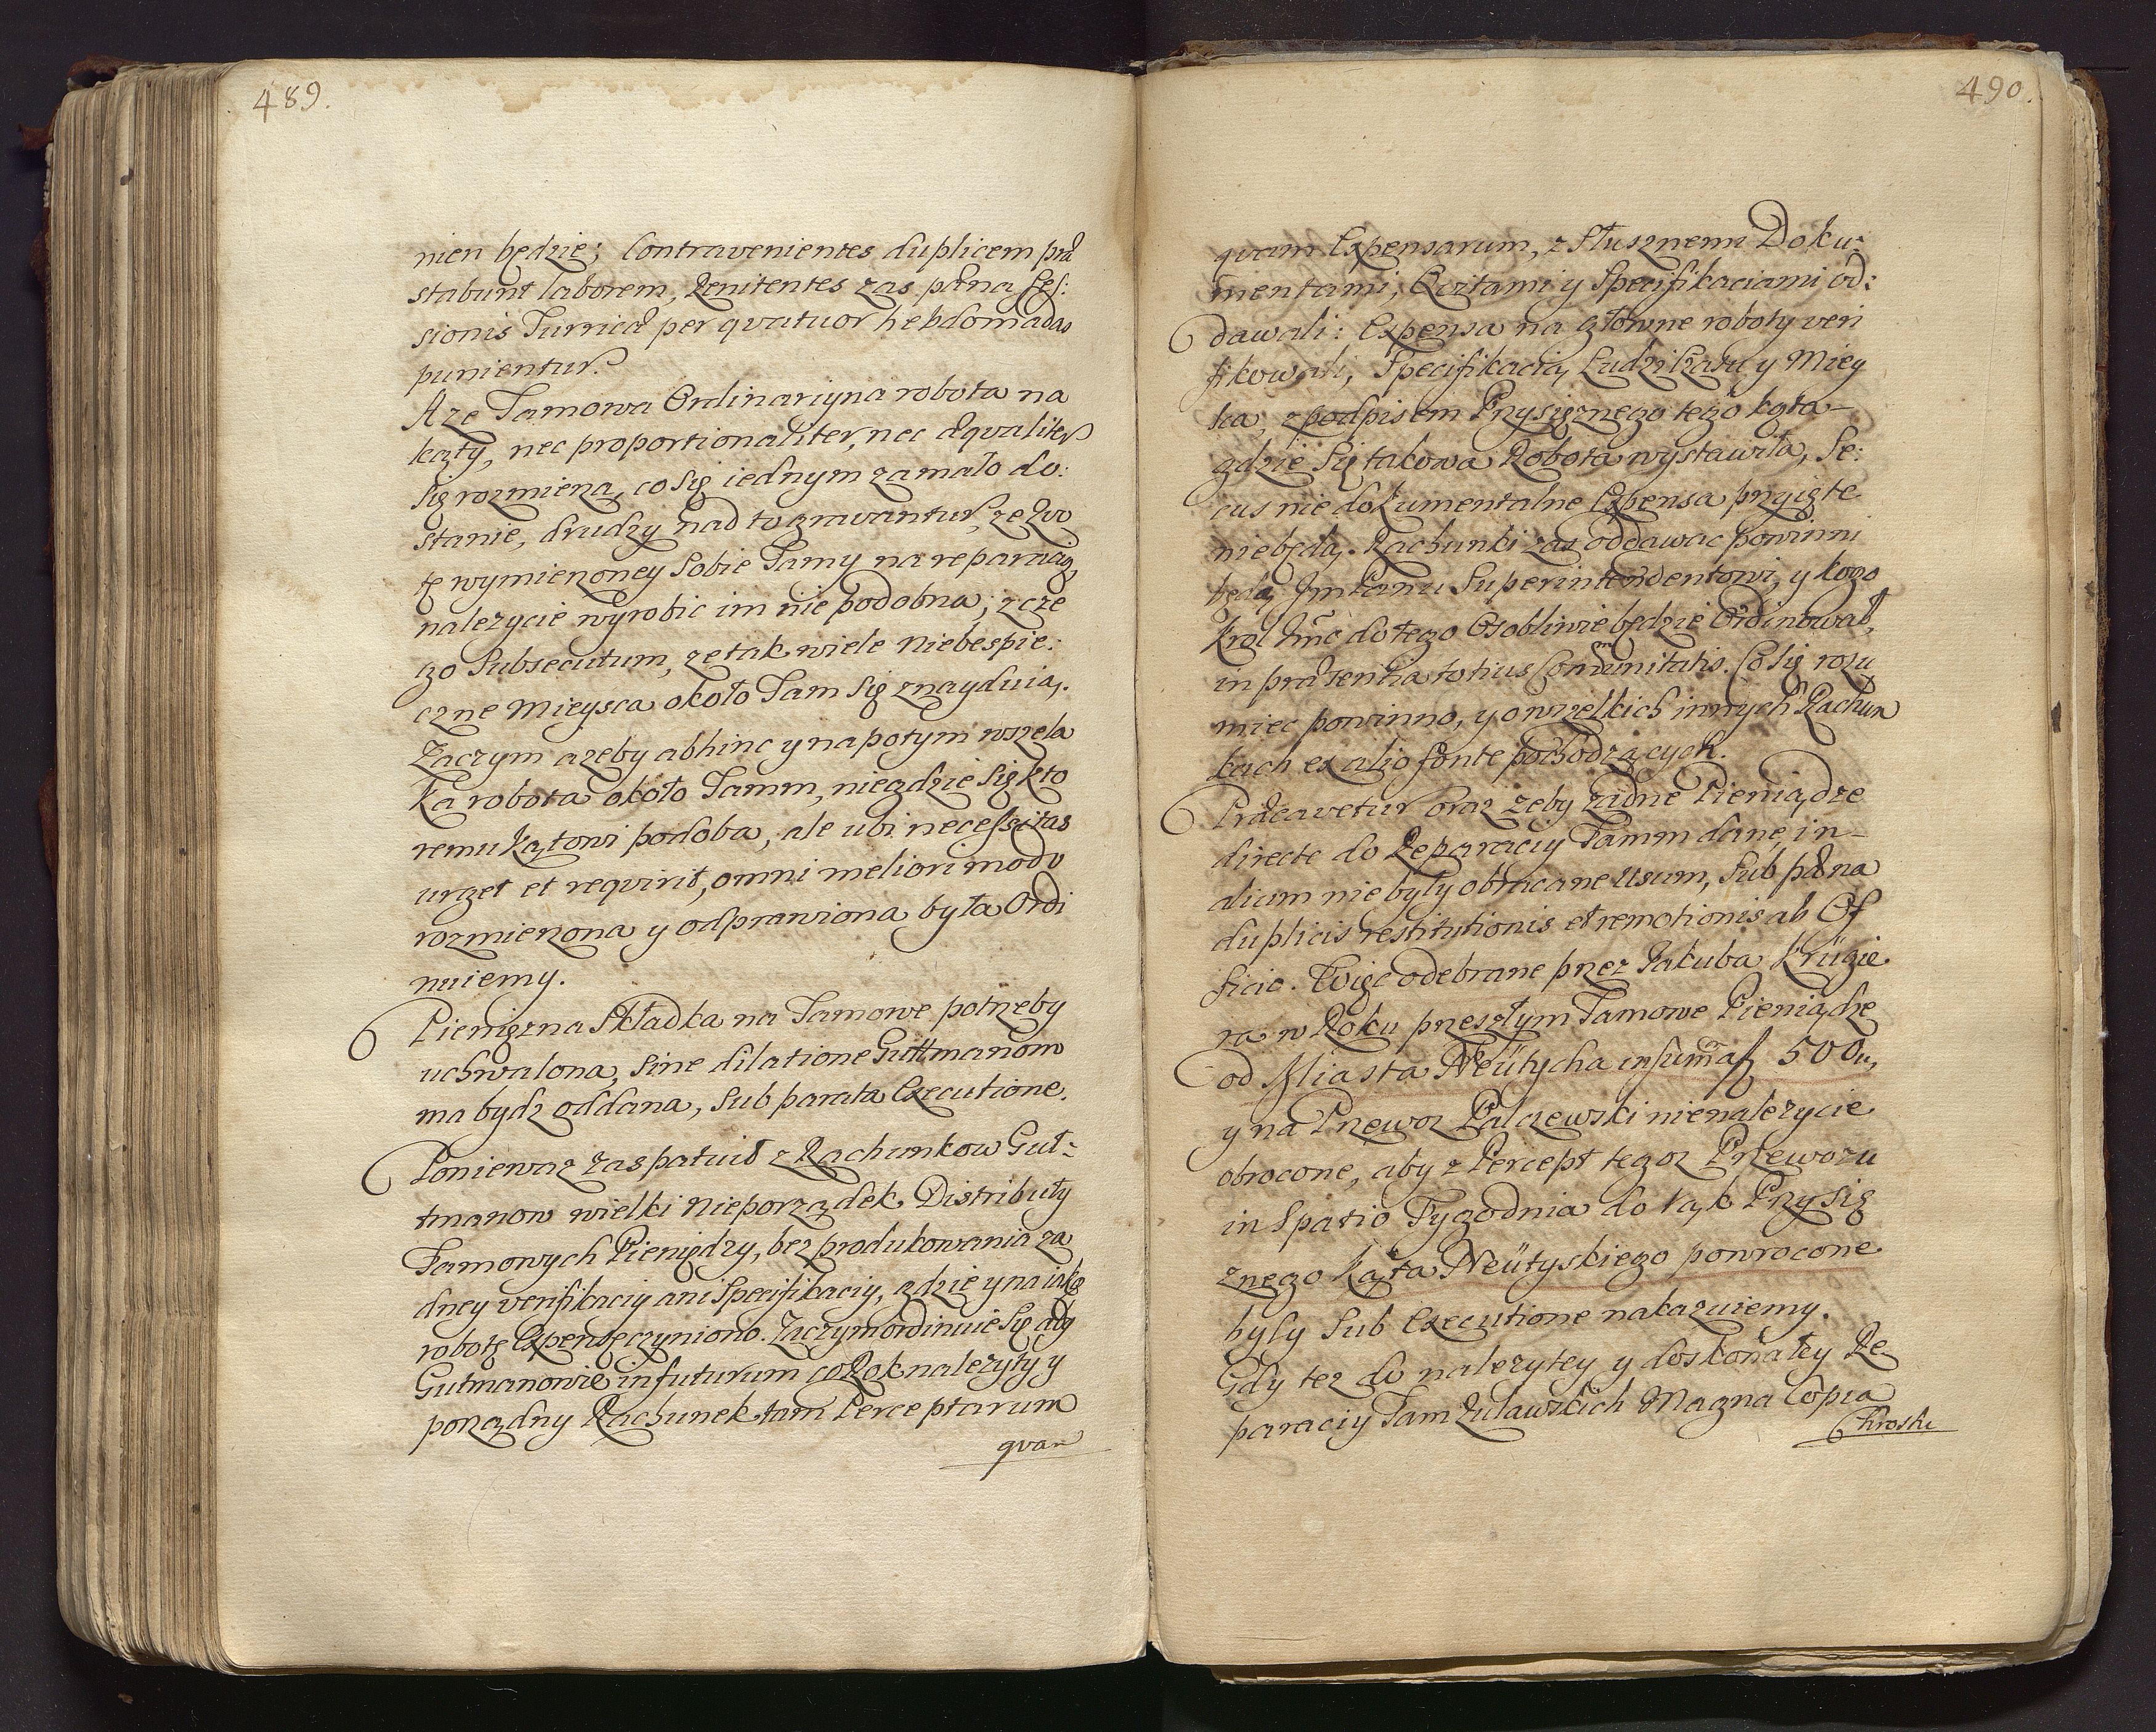 489.
nien będzie; Contravenientes duplicem præ
stabunt laborem, Renitentes zas pæna Ses:
sionis Turricæ per qvatuor hebdomadas
punientur.
A ze Tamowa Ordinaryina robota na
kąty, nec proportionaliter, nec æqvaliter
się rozmierza, co się iednym zamało do:
stanie, drudzy nad to gravantur, ze zwo
tę wymierzoney sobie Tamy na reparacią,
nalezycie wyrobic im nie podobna; z cze
go Subsecutum, ze tak wiele niebespie:
czne Mieysca około Tam się znayduią.
Zaczym azeby abhinc y napotym wszela
ka robota około Tamm, niegdzie się kto
remu Kątowi podoba, ale ubi necessitas
urget et reqvirit, omni meliori modo
rozmierzona y odprawiona była Ordi
nuiemy.
Pieniężna Składka na Tamowe potrzeby
uchwalona, sine dilatione Guttmanom
ma bydz oddana, sub parata Executione.
Poniewaz zas patuit z Rachunkow Gut:
tmanow wielki nieporządek Distributy
Tamowych Pieniędzy, bez produkowania za
dney verifikaciy ani Specifikaciy, gdzie y na iaką
robotę Expensę czyniono. Zaczym ordinuie się aby
Gutmanowie in futurum co Rok nalezyty y
porządny Rachunek tam Perceptarum
qvam
490.
qvam Expensarum, z słusznemi Doku:
mentami, Qvitami y Specifikaciami od:
dawali: Expensa na głowne roboty veri
fikowali, Specifikacią Ludzi Czasu y Miey
sca, z podpisem Przysięznego tego kąta
gdzie się takowa Robota wystawiła, Se:
cus nie dokumentalne Expensa przyięte
niebędą. Rachunki zas oddawac powinni
będą Jm Panu Superintendentowi, y kogo
Krol Jmc do tego Osobliwie będzie Ordinował,
in præsentia totius Communitatis. Co się rozu
miec powinno, y o wszelkich innych Rachun
kach ex alio fonte pochodzących.
Præcavetur oraz zeby zadne Pieniądze
directe do Reparaciy Tamm dane, in
alium nie były obracane usum, sub pæna
duplicis restitutionis et remotionis ab Of
ficio. Więc odebrane przez Jakuba Krügie
ra w Roku przeszłym Tamowe Pieniądze
od Miasta Neütycha in summa f 500
y na Przewoz Palczewski nienalezycie
obrocone, aby z Percept tegoz Przewozu
in Spatio Tygodnia do rąk Przysię
znego Kąta Neütyskiego powrocone
były sub Executione nakazuiemy.
Gdy tez do nalezytey y doskonałey Re
paraciy Tam Zuławskich Magna Copia
Chrostu